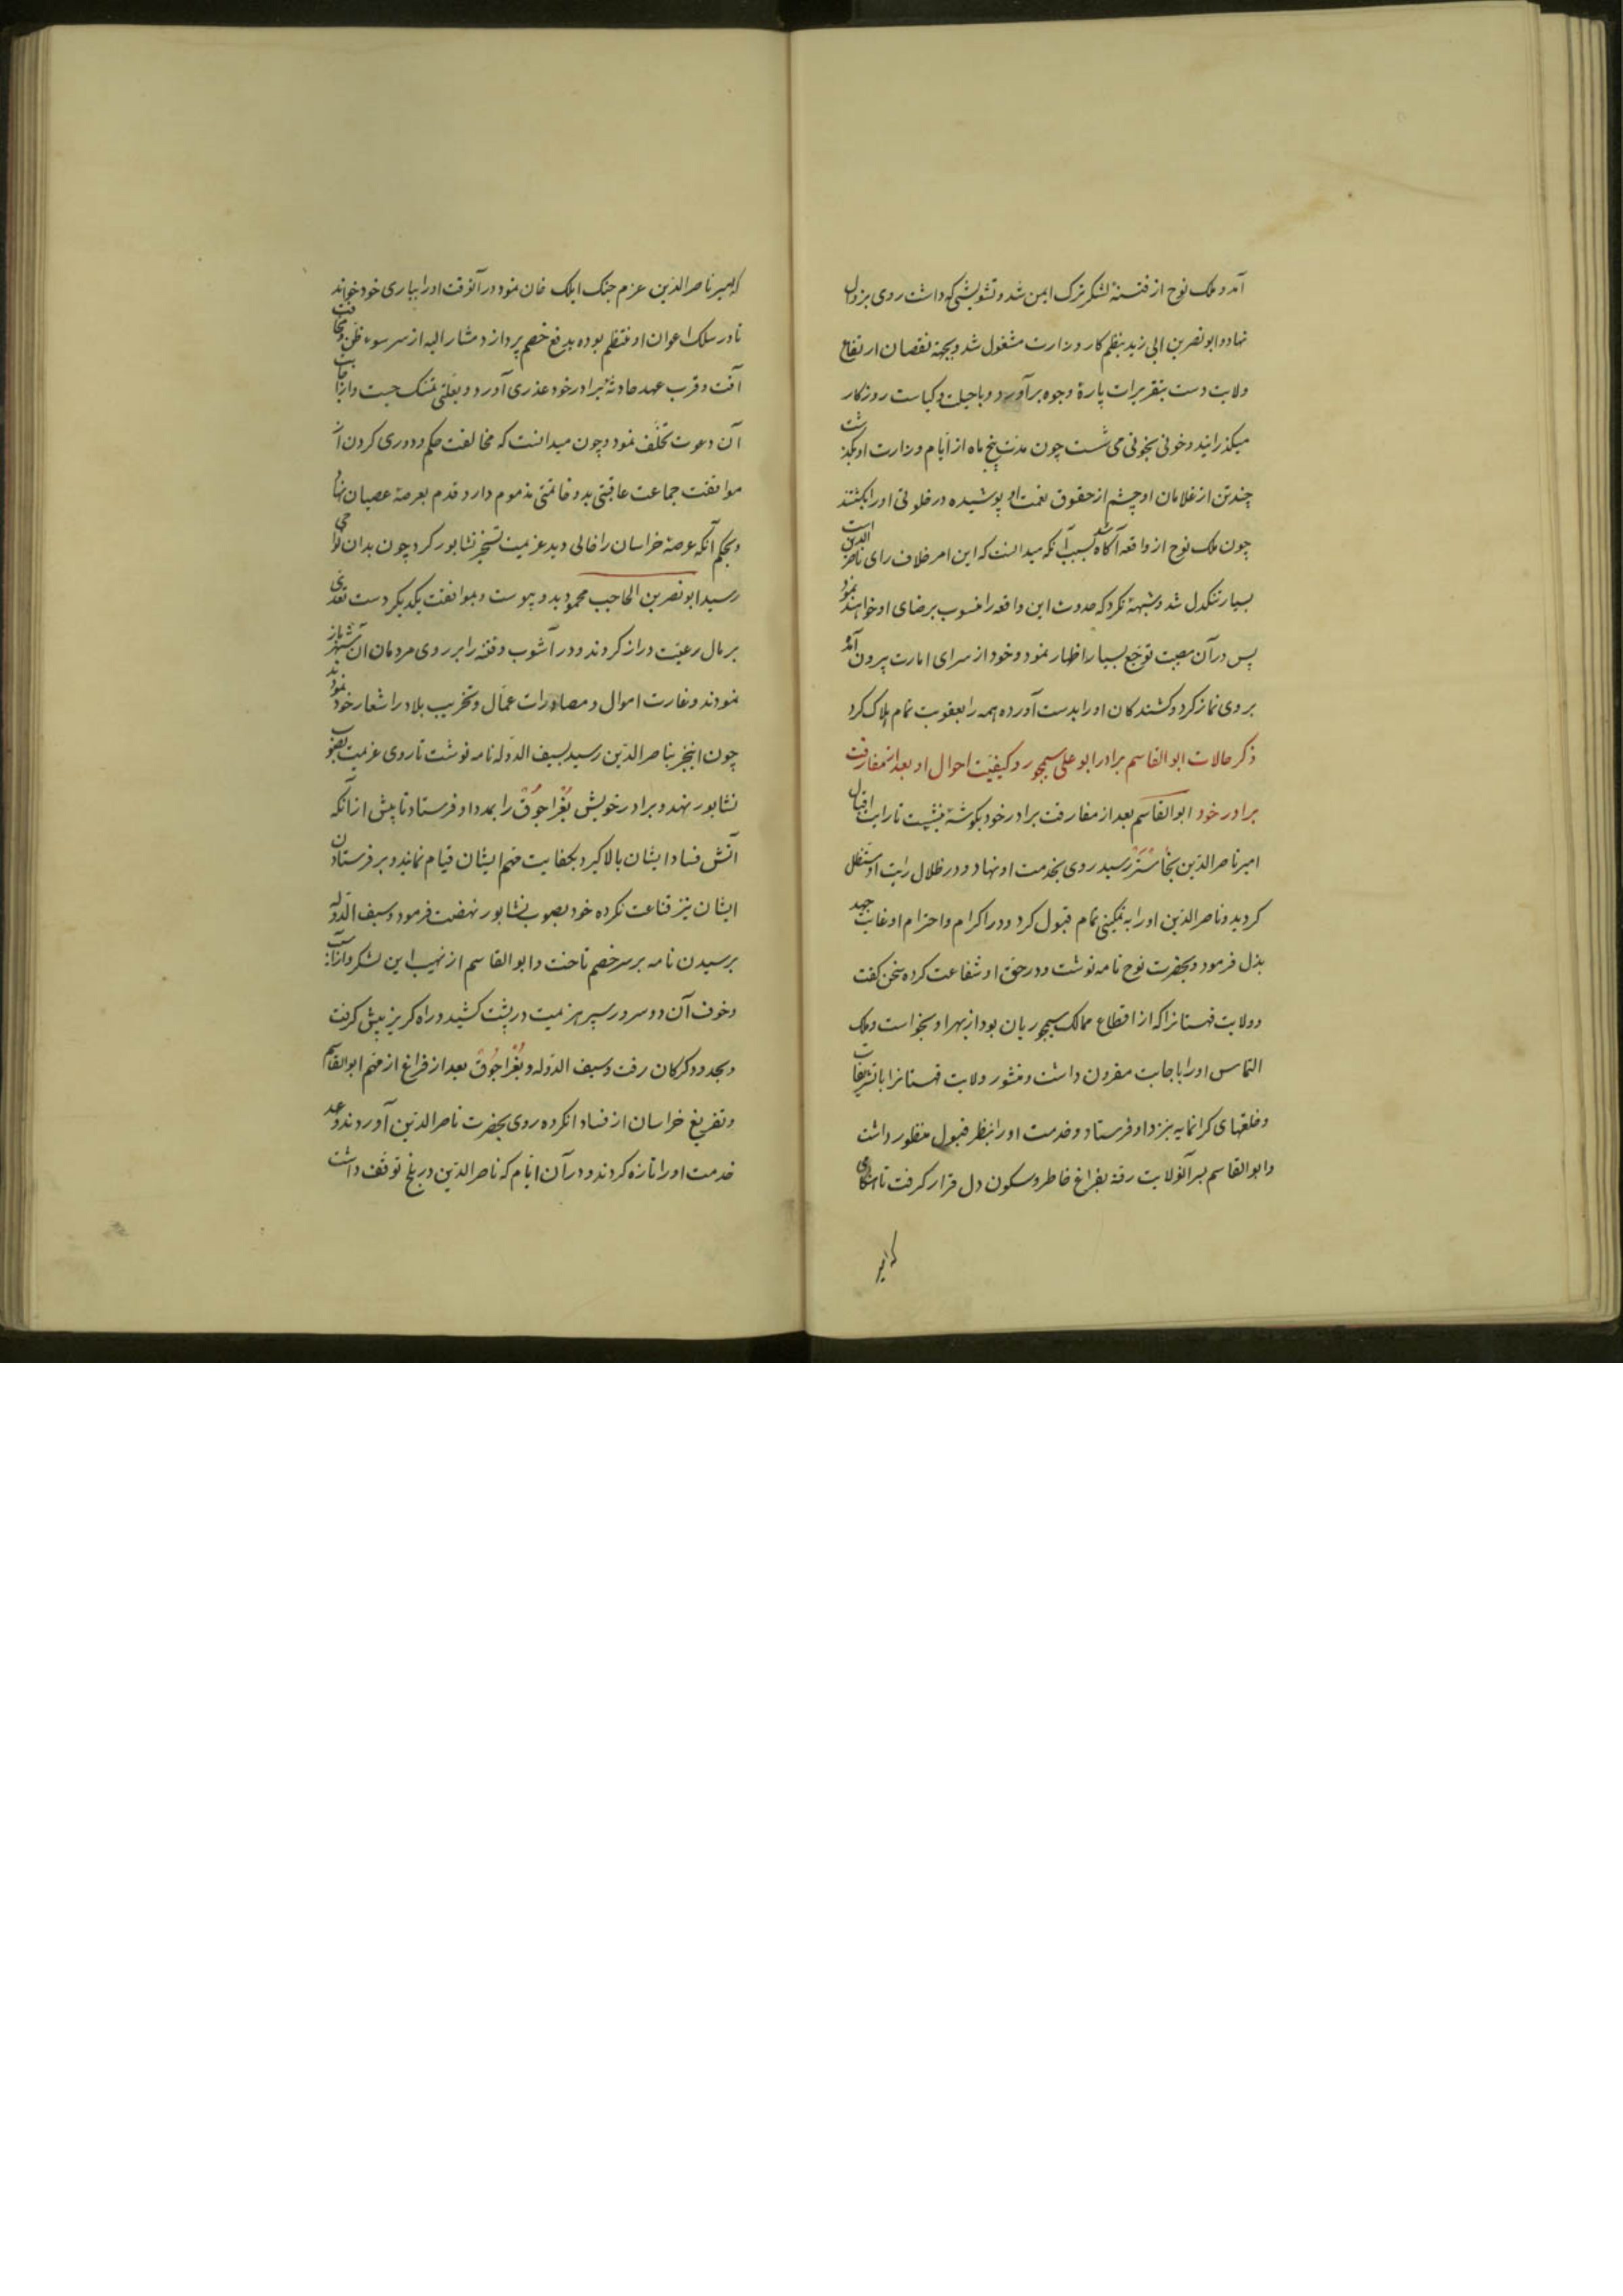 آمد و ملک نوح از فتنهٔ لشکر ترک ایمن شد و تشویشی که داشت روی بزوال
نهاد و ابو نصر بن ابی زید بنظم کار وزارت مشغول شد و بجهة نقصان ارتفاع
ولایت دست بتقریرات پارهٔ وجوه برآورد و با حیلت و کیاست روزکار
میکذرانید و خونی بخونی می شست چون مدت پنج ماه از ایام وزارت او بکذشت
چند تن از غلامان او چشم از حقوق نعمت او پوشیده در خلوتی او را بکشتند
چون ملک نوح از واقعه آکاه شد بسبب آنکه میدانست که این امر خلاف رای ناصر الدین است
بسیار تنکدل شد و شبهة نکرد که حدوث این واقعه را منسوب برضای او خواهند نمود
پس در آن مصیبت توجع بسیار اظهار نمود و خود از سرای امارت بیرون آمد
بر وی نماز کرد و کشندکان او را بدست آورده همه را بعقوبت تمام هلاک کرد
ذکر حالات ابو القاسم برادر ابو علی سیمجور و کیفیت احوال او بعد از مفارقت
برادر خود ابو القاسم بعد از مفارقت برادر خود بکوشهٔ بنشست تا رایت اقبال
امیر ناصر الدین رسید روی بخدمت او نهاد و در ظلال رایت او مستظل
کردید و ناصر الدین او را به تمکینی تمام قبول کرد و در اکرام و احترام او غایت جهد
بذل فرمود و بحضرت نوح نامه نوشت و در حق او شفاعت کرده سخن کفت
و ولایت قهستانرا که از اقطاع ممالک سیمجوریان بود از بهر او بخواست و ملک
التماس او را باجابت مقرون داشت و منشور ولایت قهستانرا با تشریفات
و خلعتهای کرانمایه بنزد او فرستاد و خدمت او را بنظر قبول منظور داشت
و ابو القاسم بر آنولایت رفته بفراغ خاطر و سکون دل قرار کرفت تا هنکامی
که امیر
که امیر ناصر الدین عزم جنک ایلک خان نمود در آنوقت او را بیاری خود خواند
تا در سلک اعوان او منتظم بوده بدفع خصم پردازد مشار الیه از سر سوء ظن و مخافت
آفت و قرب عهد حادثهٔ برادر خود عذری آورد و بعلتی متمسک جست و از اجابت
آن دعوت تخلف نمود و چون میدانست که مخالفت حکم و دوری کردن از
موافقت جماعت عاقبتی بد و خاتمتی مذموم دارد قدم بعرصهٔ عصیان نهاد
و بحکم آنکه عرصهٔ خراسان را خالی دید عزیمت تسخیر نشابور کرد چون بدان نواحی
رسید ابو نصر بن الحاجب محمود بدو پیوست و بموافقت یکدیکر دست تعدی
بر مال رعیت دراز کردند و در آشوب و فتنه را بر روی مردمان آن شهر باز
نمودند و غارت اموال و مصادرات عمال و تخریب بلاد را شعار خود نمودند
چون اینخبر بناصر الدین رسید بسیف الدوله نامه نوشت تا روی عزیمت بصوب
نشابور نهد و برادر خویش بُغراجُوق را بمدد او فرستاد تا پیش از آنکه
آتش فساد ایشان بالا کیرد بکفایت مهم ایشان قیام نمایند و بر فرستادن
ایشان نیز قناعت نکرده خود بصوب نشابور نهضت فرمود و سیف الدوله
برسیدن نامه بر سر خصم تاخت و ابو القاسم از نهیب این لشکر
و خوف آن دو سرور سپر هزیمت در پشت کشید و راه کریز پیش کرفت
و بحدود کرکان رفت و سیف الدوله و بُغراجُوق بعد از فراغ از مهم ابو القاسم
و تفریغ خراسان از فساد روی بحضرت ناصر الدین آوردند و عهد
خدمت او را تازه کردند و در آن ایام که ناصر الدین در بلخ توقف داشت